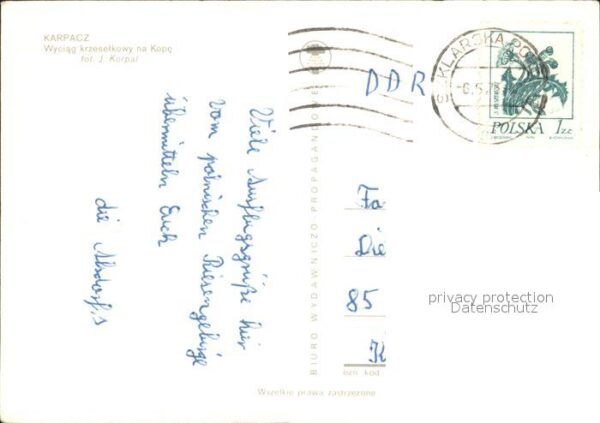 KARPACZ
Wyciąg krzesełkowy na Kopę
fot. J. Korpal
Viele Ausflugsgrüße hier
vom polnischen Riesengebirge
übermitteln Euch
die Alsdorf's
BIURO WYDAWNICZO-PROPAGANDOWE
DDR
KLARSKA PO
POLSKA 1 ZŁ
Fa
Die
85
K
ozn. kod
privacy protection
Datenschutz
Wszelkie prawa zastrzeżone